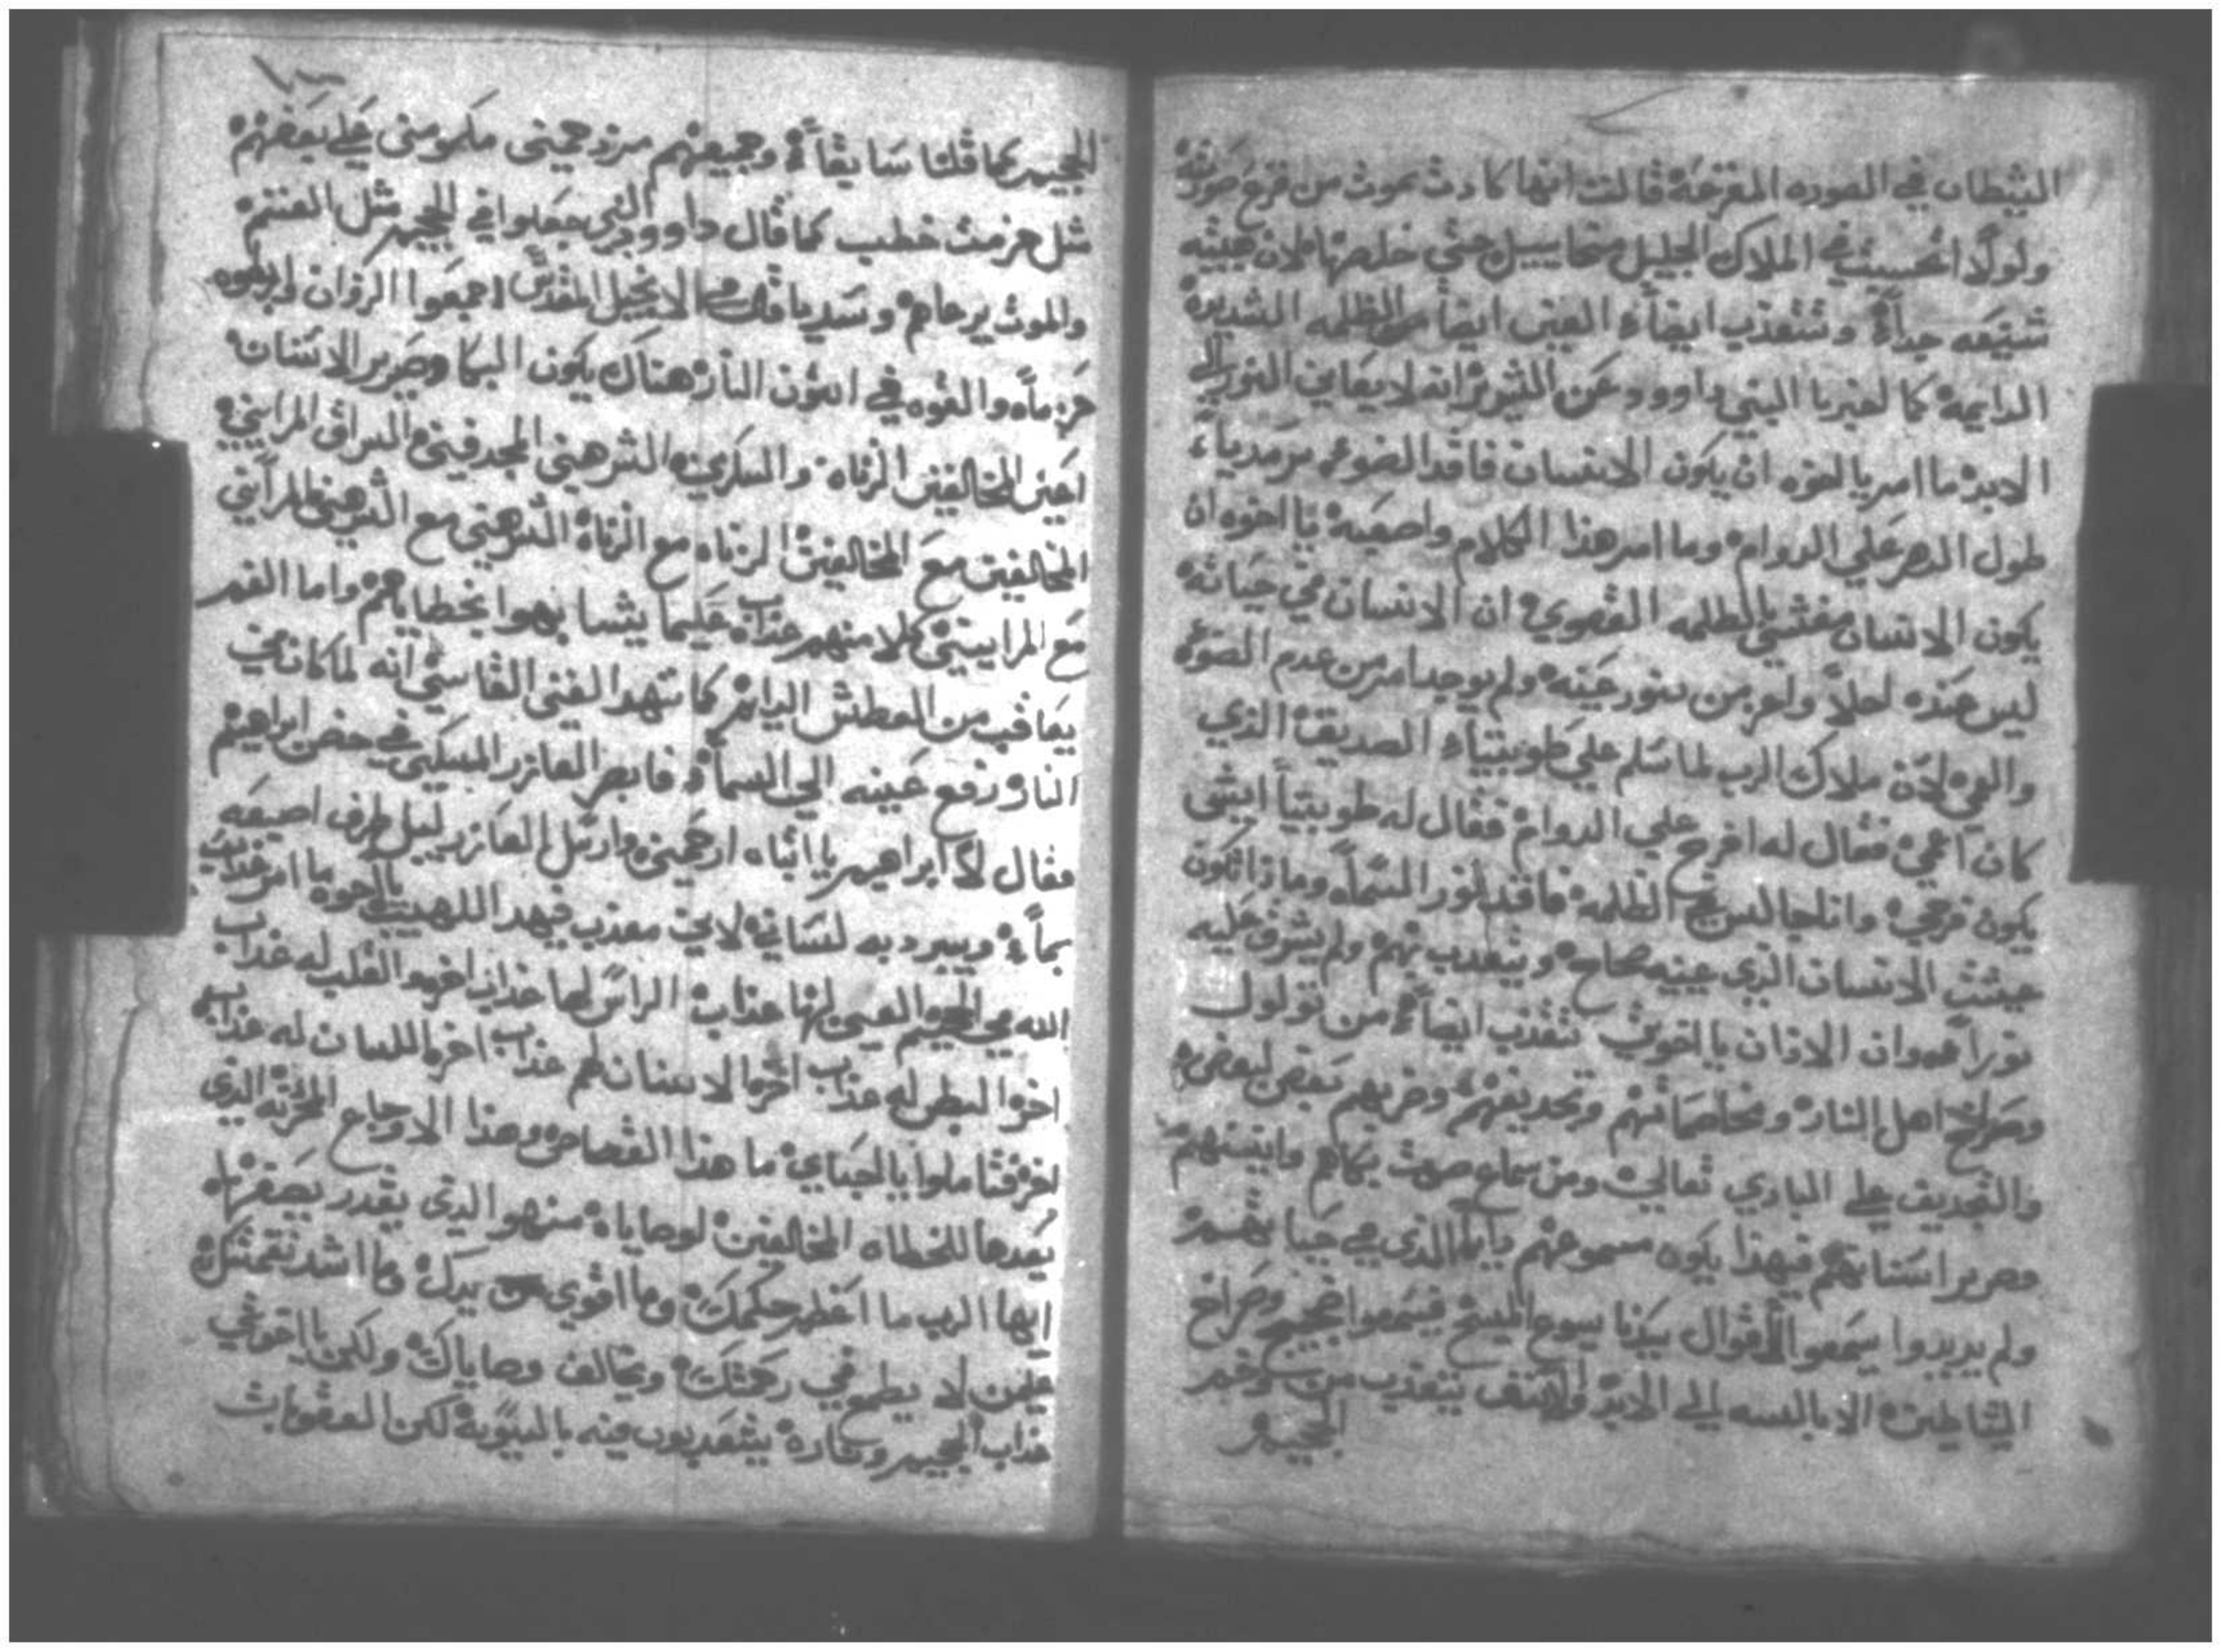 الشيطان في الصوره المفزعه قالت انها كادت تموت من فزع صورته
ولولا الملاك الجليل ميخاييل حتي خلصها لان هيبته
شنيعه جداً وتتعذب ايضاً العين ايضاً من الظلمه الشديده
الدايمه كما اخبرنا النبي داوود عن الشرير انه لا يعاين النور الي
الابد ما امر يا اخوه ان يكون الانسان فاقد الضوء سرمدياً
طول الدهر علي الدوام وما امر هذا الكلام واصعبه يا اخوه ان
يكون الانسان بالظلمه القصوي ان الانسان في حياته
ليس عنده احلا واعز من نور عينه ولم يوجد امر من عدم الضوء
والعمي لان ملاك الرب لما سلم علي طوبيتا الصديق الذي
كان اعمي فقال له افرح علي الدوام فقال له طوبيتا ايش
يكون فرحي وانا جالس في الظلمه فاقد نور السما وماذا تكون
الانسان الذي عينيه صحاح ويتعدب بهم ولم يشرق عليه
نوراً وان الاذان يا اخوتي تتعذب ايضاً من تولول
وصراخ اهل النار ومخاصماتهم وتجديفهم وضربهم بعض لبعض
والتجديف علي الباري تعالي ومن سماع صوت بكاهم وانينهم
وصرير اسنانهم فبهذا يكون مسموعهم دايماً الذي في حياتهم
ولم يريدوا يسمعوا اقوال سيدنا يسوع المسيح فيسمعوا ضجيج وصراخ
الشياطين الابالسه الي الابد والانف يتعذب من وخم
الجحيم
الجحيم كما قلنا سابقاً وجميعهم مزدحمين مكومين علي بعضهم
مثل حزمت حطب كما قال داوود النبي جعلوا في الجحيم مثل الغنم
والموت يرعاهم وسيدنا قال في الانجيل المقدس اجمعوا الزوان اربطوه
حزماً والقوه في اتون النار هناك يكون البكا وصرير الاسنان
اعني المخالفين الزناه والسكريين الشرهين المجدفين السراق المرايين
المخالفين مع المخالفين الزناه مع الزناه الشرهين مع الشرهين المرايين
مع المرايين كلا منهم عذابه علي ما يتشابهوا بخطاياهم واما الفم
يعاقب من العطش الدايم كما شهد الغني القاسي انه لما كان في
النار رفع عينه الي السما فابصر العازر المسكين في حضن ابراهيم
فقال يا ابتاه ابراهيم ارحمني وارسل العازر ليبل طرف اصبعه
بماً ويبرد به لساني لاني معذب في هذا اللهيب يا اخوه ما امر عذاب
الله في الجحيم العين لها عذاب الراس لها عذاب اخر والقلب له عذاب
اخر البطن له عذاب اخر الاسنان لهم عذاب اخر اللسان له عذاب
اخر فتاملوا يا احباي ما هذا القصاص وهذا الاوجاع المحزنه الذي
يعدها للخطاه المخالفين لوصاياه من هو الذي يقدر يصفها
ايها الرب ما اعظم حكمتك وما اقوي يدك وما اشد نقمتك
علي من لا يطمع في رحمتك ويخالف وصاياك ولكن يا اخوتي
عذاب الجحيم وناره يتعذبون فيه بالسويه لكن العقوبات